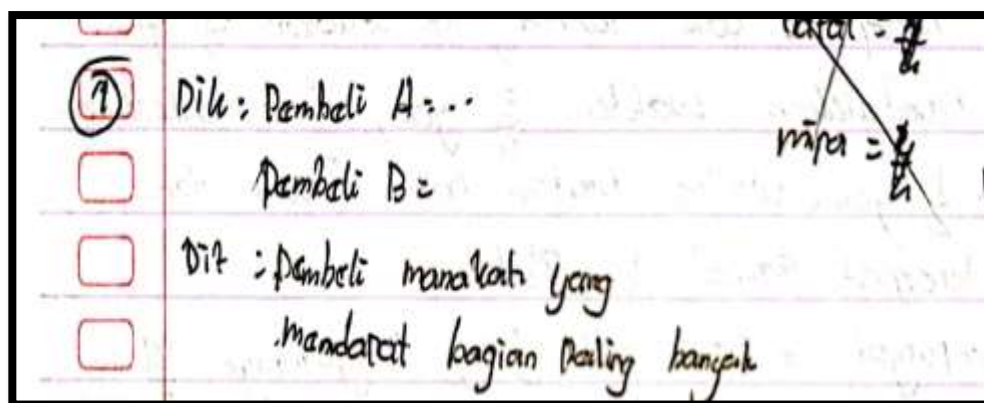 ① Dik : Pembeli A = ...
Pembeli B =
Dit : Pembeli manakah yang
mendapat bagian Paling banyak